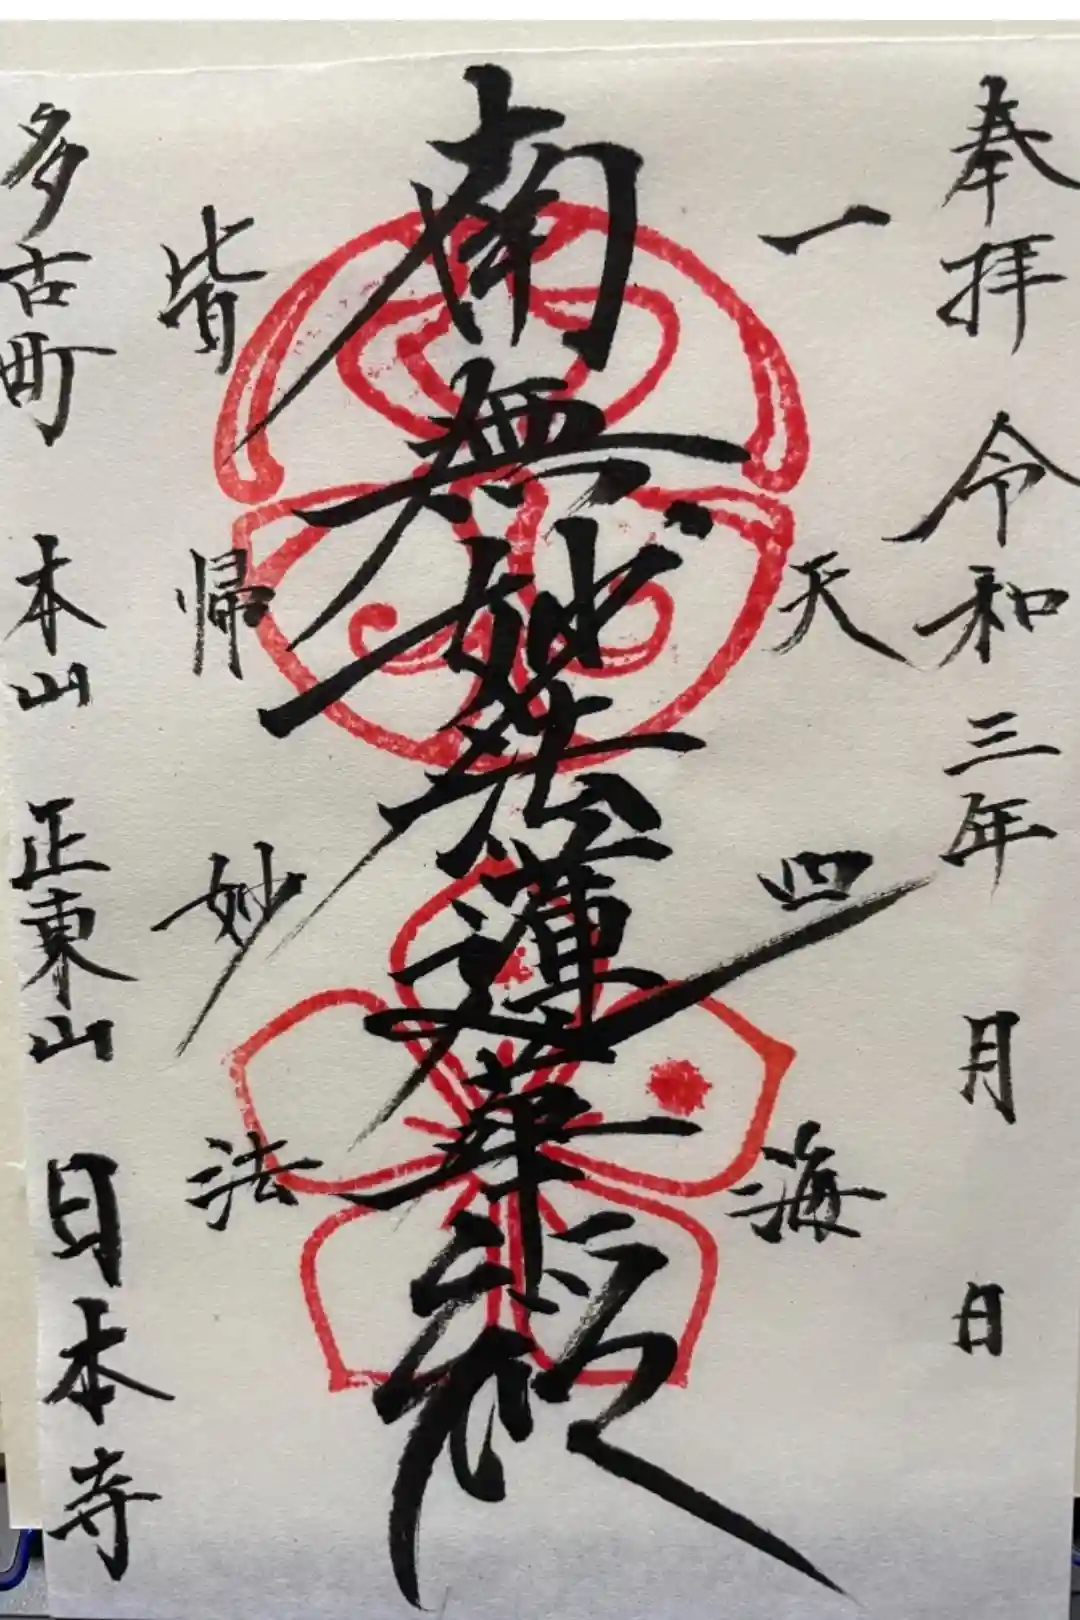 奉拝 令和三年 月 日
一天四海
南無妙法蓮華経
皆帰妙法
多古町 本山 正東山 日本寺